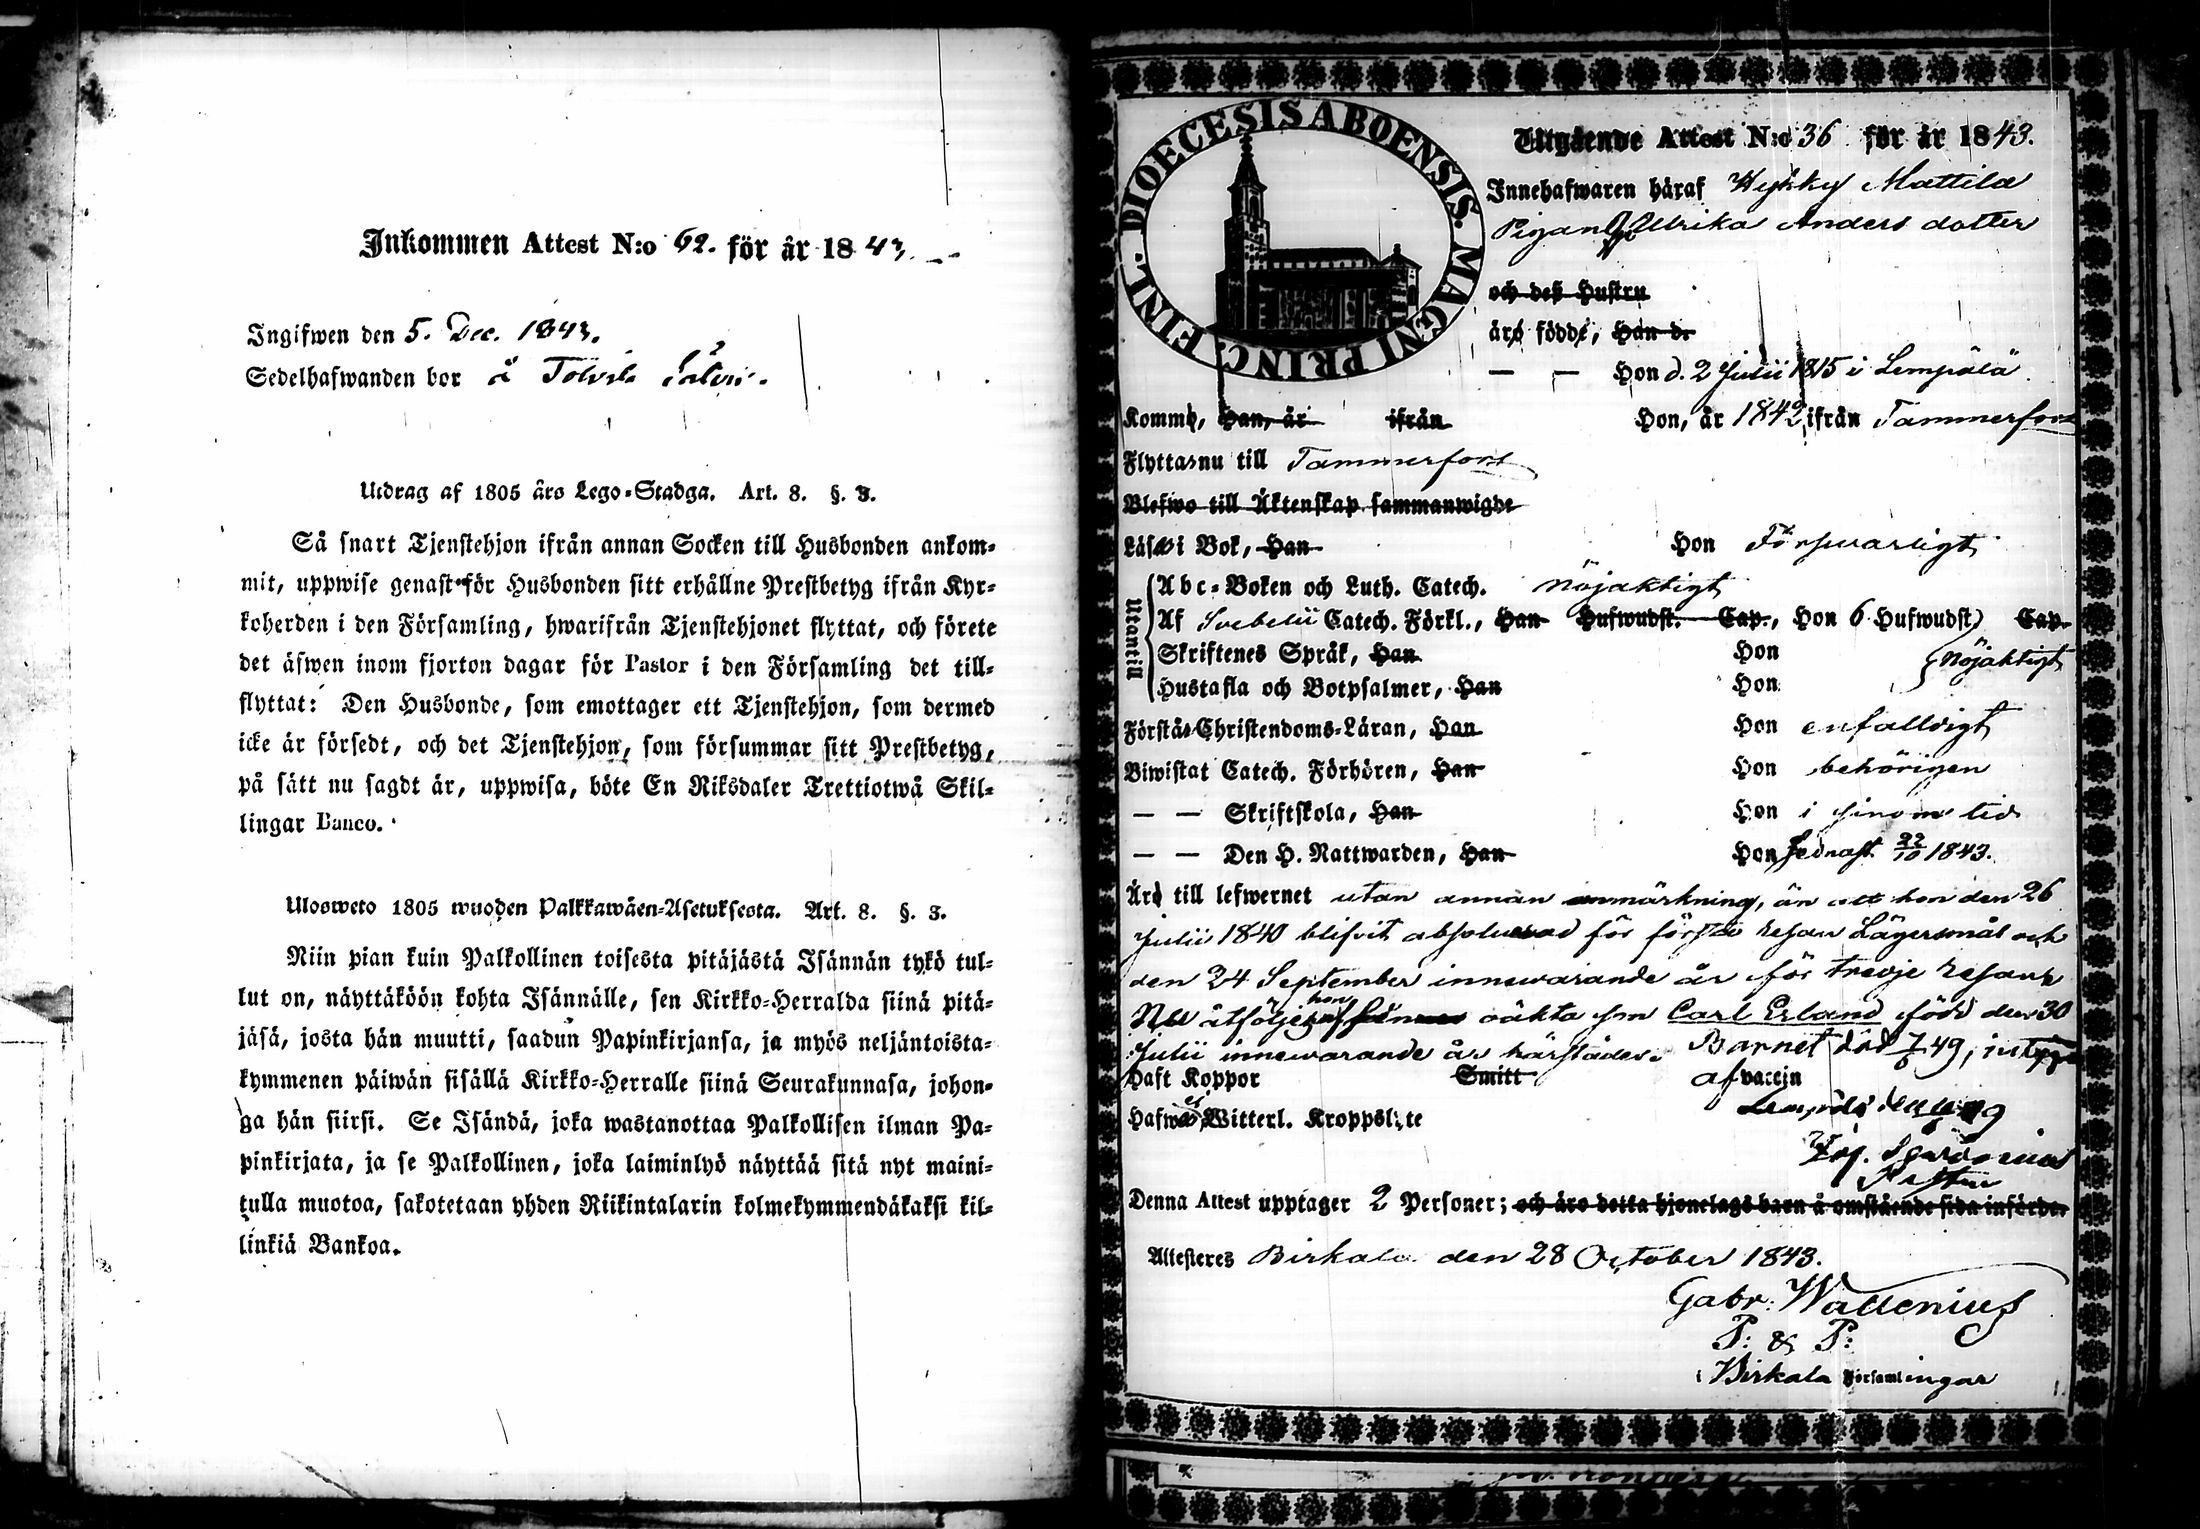 Inkommen Attest N:o 62. för år 1843.
Ingifwen den 5. Dec. 1843.
Sedelhafwanden bor å
Utdrag af 1805 års Lego-Stadga. Art. 8. §. 3.
Så snart Tjenstehjon ifrån annan Socken till Husbonden ankom-
mit, uppwise genast för Husbonden sitt erhållne Prestbetyg ifrån Kyr-
koherden i den Församling, hwarifrån Tjenstehjonet flyttat, och förete
det äfwen inom fjorton dagar för Pastor i den Församling det till-
flyttat: Den Husbonde, som emottager ett Tjenstehjon, som dermed
icke är försedt, och det Tjenstehjon, som försummar sitt Prestbetyg,
på sätt nu sagdt är, uppwisa, böte En Riksdaler Trettiotwå Skil-
lingar Banco.
Ulosweto 1805 wuoden Palkkawäen-Asetuksesta. Art. 8. §. 3.
Niin pian kuin Palkollinen toisesta pitäjästä Isännän tykö tul-
lut on, näyttäköön kohta Isännälle, sen Kirkko-Herralda siinä pitä-
jäsä, josta hän muutti, saadun Papinkirjansa, ja myös neljäntoista-
kymmenen päiwän sisällä Kirkko-Herralle siinä Seurakunnasa, johon-
ga hän siirsi. Se Isändä, joka wastanottaa Palkollisen ilman Pa-
pinkirjata, ja se Palkollinen, joka laiminlyö näyttää sitä nyt maini-
tulla muotoa, sakotetaan yhden Riikintalarin kolmekymmendäkaksi kil-
linkiä Bankoa.
DIOECESIS ABOENSIS. MAGNI PRINC. FINL.
Utgående Attest N:o 36 för år 1843.
Innehafwaren häraf Hykky Mattila
Pigan Ulrika Anders dotter
och deß Hustru
äro födde, Han d.
— — Hon d. 2 Julii 1815 i Lempälä
Kommo, Han, år ifrån Hon, år 1842 ifrån Tammerfors
Flyttar nu till Tammerfors
Blefwo till Äktenskap sammanwigde
Läser i Bok, Han Hon Försvarligt
Utantill
Abc-Boken och Luth. Catech. nöjaktigt
Af Svebelii Catech. Förkl., Han Hufwudst. Cap., Hon 6 Hufwudst) Cap.
Skriftenes Språk, Han Hon
Hustafla och Botpsalmer, Han Hon nöjaktigt
Förstår Christendoms-Läran, Han Hon enfalldigt
Biwistat Catech. Förhören, Han Hon behörigen
— — Skriftskola, Han Hon i sinom tid
— — Den H. Nattwarden, Han Hon sednast 22/10 1843.
Äro till lefwernet utan annan anmärkning, än att hon den 26
Julii 1840 blifvit absolverad för första resan Lägersmål och
den 24 September innewarande år för tredje resan
Nu åtföljer hon oäkta son Carl Erland född den 30
Julii innewarande år härstädes. Barnet död 7/6 49, intygar
Haft Koppor Smitt af vaccin
Hafwa ej Witterl. Kroppslyte
Denna Attest upptager 2 Personer; och äro detta hjonelags barn å omstående sida införde.
Attesteres Birkala den 28 October 1843.
Gabr: Wallenius
P: & P:
i Birkala Församlingar